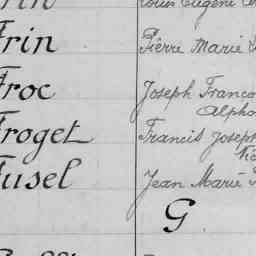 rin Louis Eugène
Frin Pierre Marie
Froc Joseph Franco
Alpho
Froget Francis Joseph
Fusel Jean Marie
G